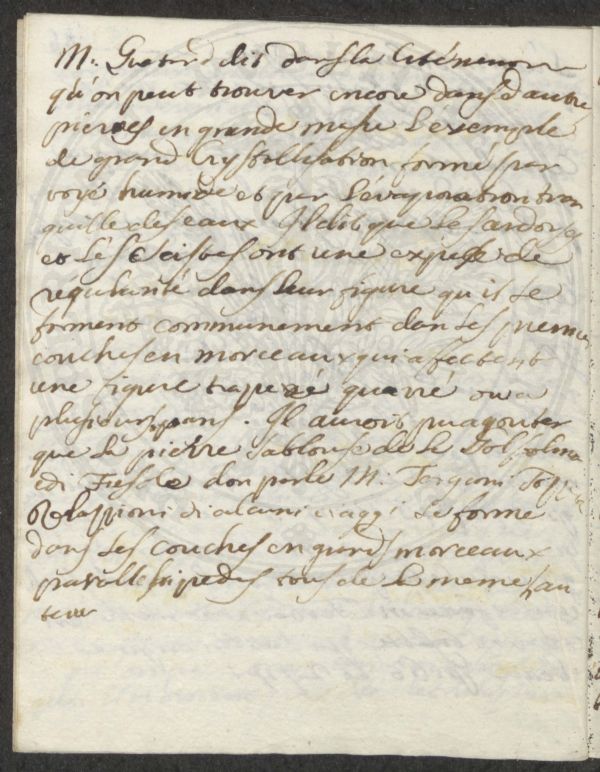 M. Guetard dit dans la
qu'on peut trouver encore dans d'autre
pierres en grande masse L'exemple
de grand Crystallisation formé par
voye humide et par L'évaporation tran
quille des eaux Il dit que Le
et Les Scistes ont une espese de
regularité dans leur figure qu'il se
forment communement dans Les premie
couches en morceaux qui afectent
une figure trapezé quarré ou a
plusieurs pans. Il auroit pu ajouter
que La pierre sablouse de
di Fiesole don parle M. Targioni
Relazioni di alcuni viaggi se forme
dans Les couches en grands morceaux
parallelipedes tous de Le meme hau
teur